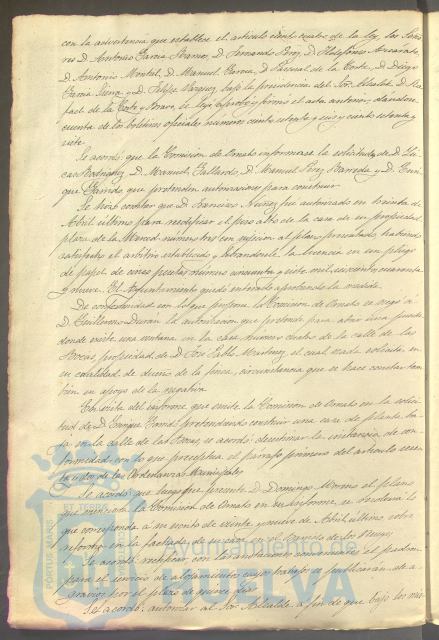 con la advertencia que establece el artículo ciento cuatro de la ley los Seño-
res D. Antonio García Ramos, D. Fernando Pérez, D. Ildefonso
D. Antonio Montiel, D. Manuel García, D. Pascual de la Corte, D. Diego
García Sierra y D. Felipe Vázquez bajo la presidencia del Sor. Alcalde D. Ra-
fael de la Corte y Bravo, se leyó aprobó y firmó el acta anterior, dándose
cuenta de los boletines oficiales números ciento setenta y seis y ciento setenta y
siete.
Se acordó que la Comisión de Ornato informara la solicitudes de D. Lu-
cas Rodríguez, D. Manuel Gallardo, D. Manuel Pérez Barreda y D. Enri-
que Garrido que pretenden autorizaciones para construir.
Se hizo constar que D. Francisco Núñez fue autorizado en treinta de
Abril último para reedificar el piso alto de la casa de su propiedad
plaza de la Merced número tres con sujeción al plano presentado, habiendo
satisfecho el arbitrio establecido y librándosele la licencia en un pliego
de papel de cinco pesetas número cincuenta y siete mil, seiscientos cuarenta
y nueve. El Ayuntamiento quedó enterado aprobando la medida.
De conformidad con lo que propone la Comisión de Ornato se negó á
D. Guillermo Durán la autorización que pretende para abrir una puerta
donde existe una ventana en la casa número cuatro de la calle de las
Bocas, propiedad de D. José Pablo Martínez, el cual nada solicita en
su cualidad de dueño de la finca, circunstancia que se hace constar tam-
bién en apoyo de la negativa.
En vista del informe que emite la Comisión de Ornato en la solici-
tud de D. Enrique Garrido pretendiendo construir una casa de planta ba-
ja en la calle de las Bocas, se acordó desestimar la instancia de con-
formidad con lo que preceptúa el párrafo primero del artículo
de las Ordenanzas Municipales
Se acordó que luego que presente D. Domingo Moreno el plano
que menciona la Comisión de Ornato en su informe, se resolverá lo
que corresponda á su escrito de veinte y nueve de Abril último sobre
reforma en la fachada de su casa en el Barrio de los
Se acordó rectificar con la anticipación conveniente el padrón
para el servicio de alojamientos cuyos trabajos se publicarán de a-
gravios por el plazo de nueve días
Se acordó autorizar al Sor. Alcalde a fin de que bajo las mis-
Ayuntamiento de
HUELVA